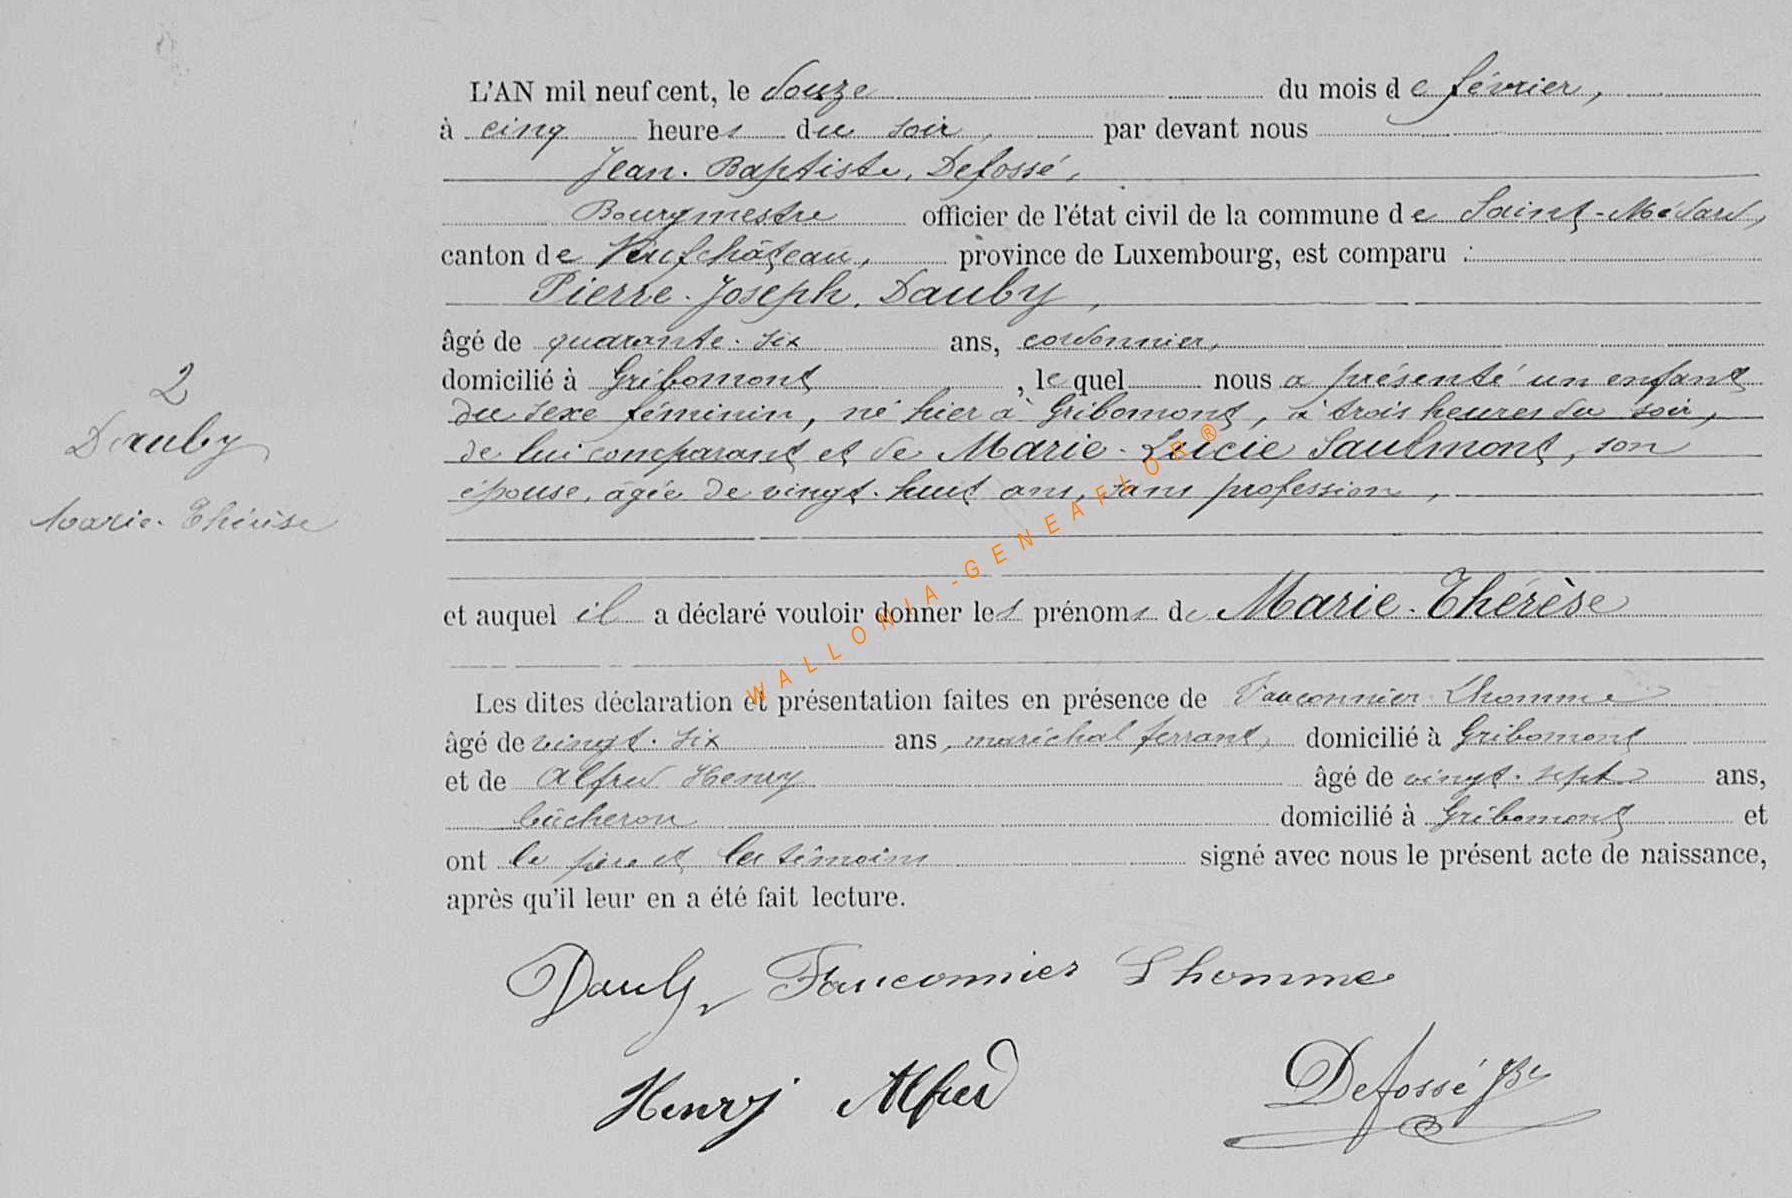 L'AN mil neuf cent, le douze du mois de février,
à cinq heures du soir, par devant nous
Jean-Baptiste, Defossé,
Bourgmestre officier de l'état civil de la commune de Saint-Médard,
canton de Neufchâteau, province de Luxembourg, est comparu :
Pierre-Joseph, Dauby,
âgé de quarante-six ans, cordonnier,
domicilié à Gribomont, lequel nous a présenté un enfant
du sexe féminin, né hier à Gribomont, à trois heures du soir,
de lui comparant et de Marie-Lucie Saulmont, son
épouse, âgée de vingt-huit ans, sans profession,
2
Dauby
Marie-Thérèse
et auquel il a déclaré vouloir donner les prénoms de Marie-Thérèse
Les dites déclaration et présentation faites en présence de Fauconnier Lhomme
âgé de vingt-six ans, maréchal ferrant, domicilié à Gribomont
et de Alfred Henry âgé de vingt-sept ans,
bûcheron domicilié à Gribomont et
ont le père et les témoins signé avec nous le présent acte de naissance,
après qu'il leur en a été fait lecture.
Dauby Fauconnier Lhomme
Henry Alfred Defossé JBte
WALLONIA-GENEAFLOR®